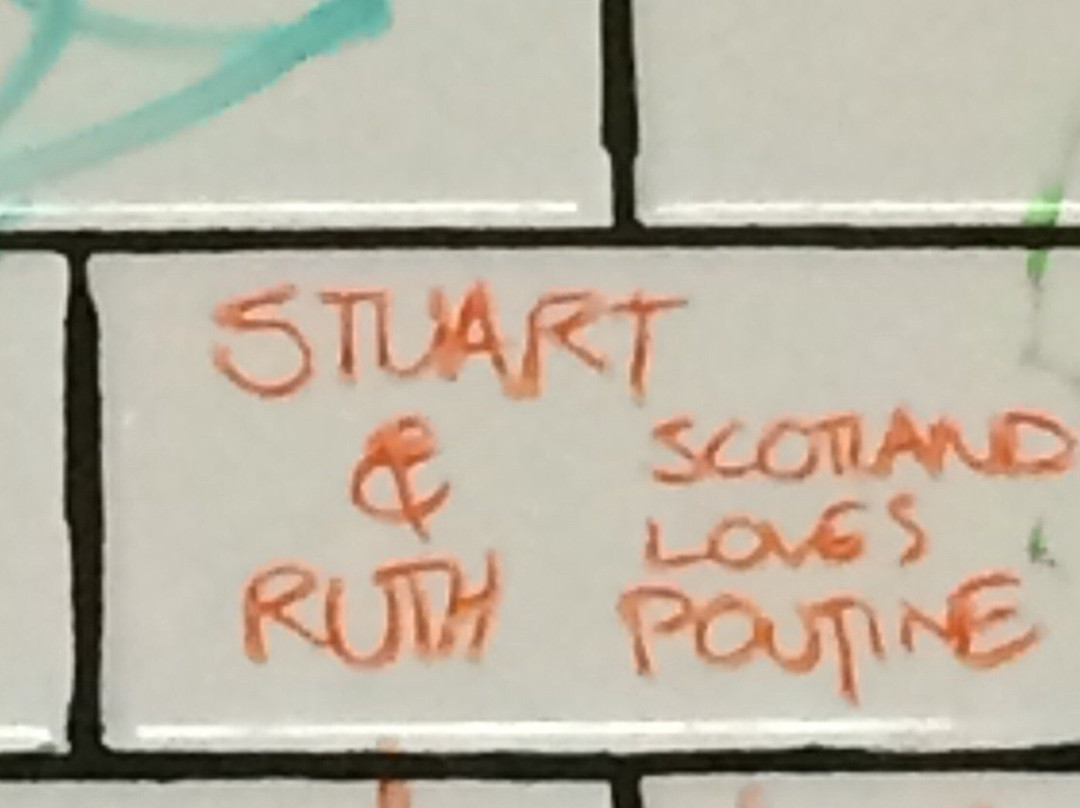 STUART
&
RUTH
SCOTLAND
LOVES
POUTINE